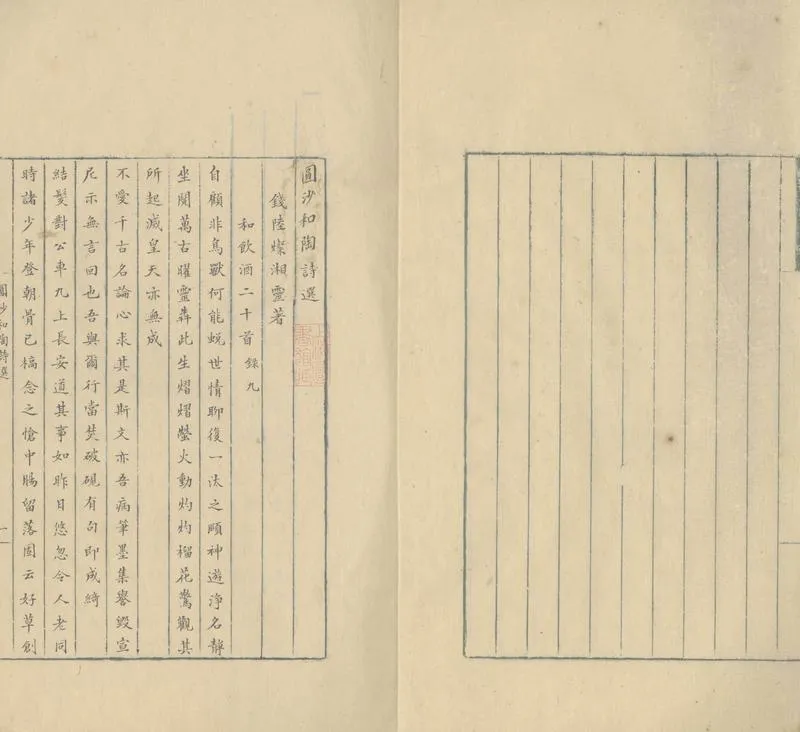 圓沙和陶詩選
錢陸燦湘靈著
和飲酒二十首 錄九
自顧非鳥獸何能蛻世情聊復一汰之頤神遊淨名靜
坐閱萬古曜靈轟此生熠熠螢火動灼灼榴花驚觀其
所起滅皇天亦無成
不愛千古名論心求其是斯文亦吾病筆墨集譽毀宣
尼示無言回也吾與爾行當焚破硯有句即成綺
結髮對公車九上長安道其事如昨日悠忽令人老同
時諸少年登朝骨已槁念之愴中腸留落固云好草創
圓沙和陶詩選
一